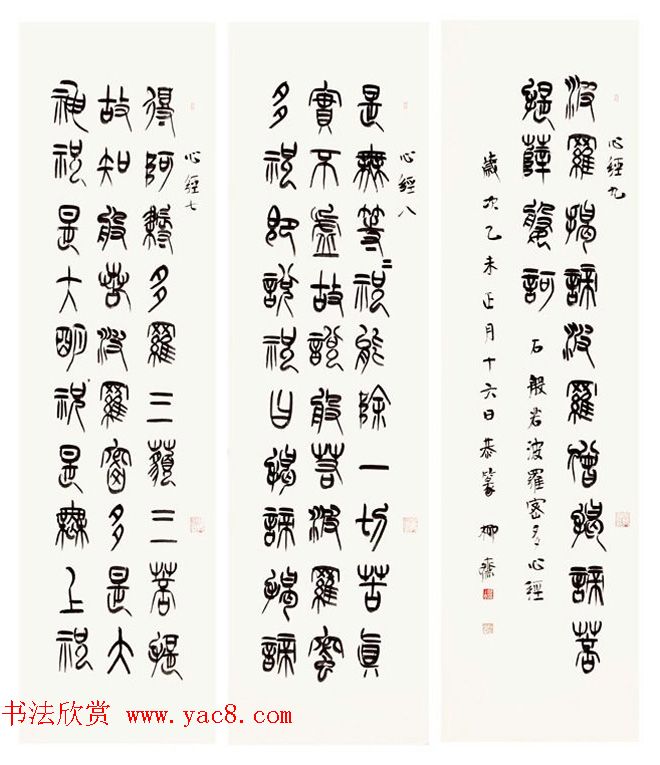 心經七
得阿耨多羅三藐三菩提
故知般若波羅蜜多是大
神祝是大明祝是無上祝
心經八
是無等等祝能除一切苦真
實不虛故說般若波羅蜜
多祝即說祝曰揭諦揭諦
心經九
波羅揭諦波羅僧揭諦菩
提薩婆訶
右般若波羅密多心經
歲次乙未正月十六日恭篆 柳齋
书法欣赏 www.yac8.com